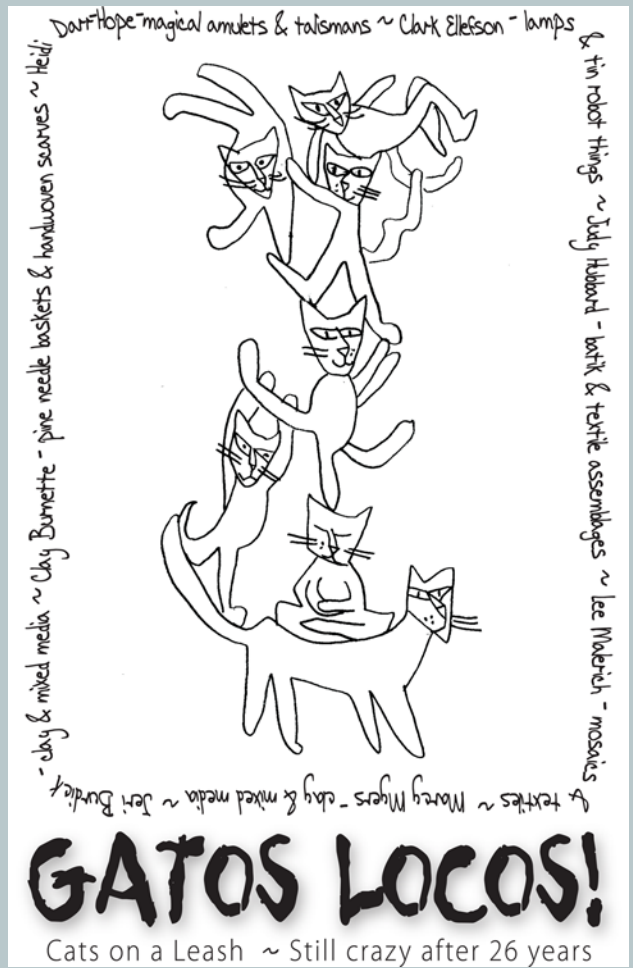 Darr-Hope-magical amulets & talismans ~ Clark Ellefson - lamps
& tin robot things ~ Judy Hubbard - batik & textile assemblages ~ Lee Malerich - mosaics
& textiles ~ Marcy Myers - clay & mixed media ~ Jeri Burdick
- clay & mixed media ~ Clay Burnette - pine needle baskets & handwoven scarves ~ Heidi
GATOS LOCOS!
Cats on a Leash ~ Still crazy after 26 years